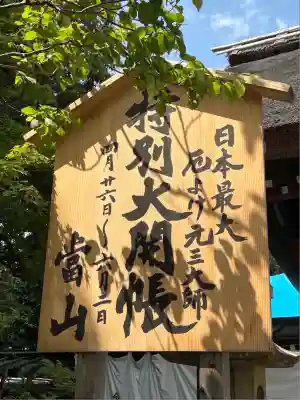 日本最大
厄よけ元三大師
特別大開帳
四月廿六日〜六月一日
當山